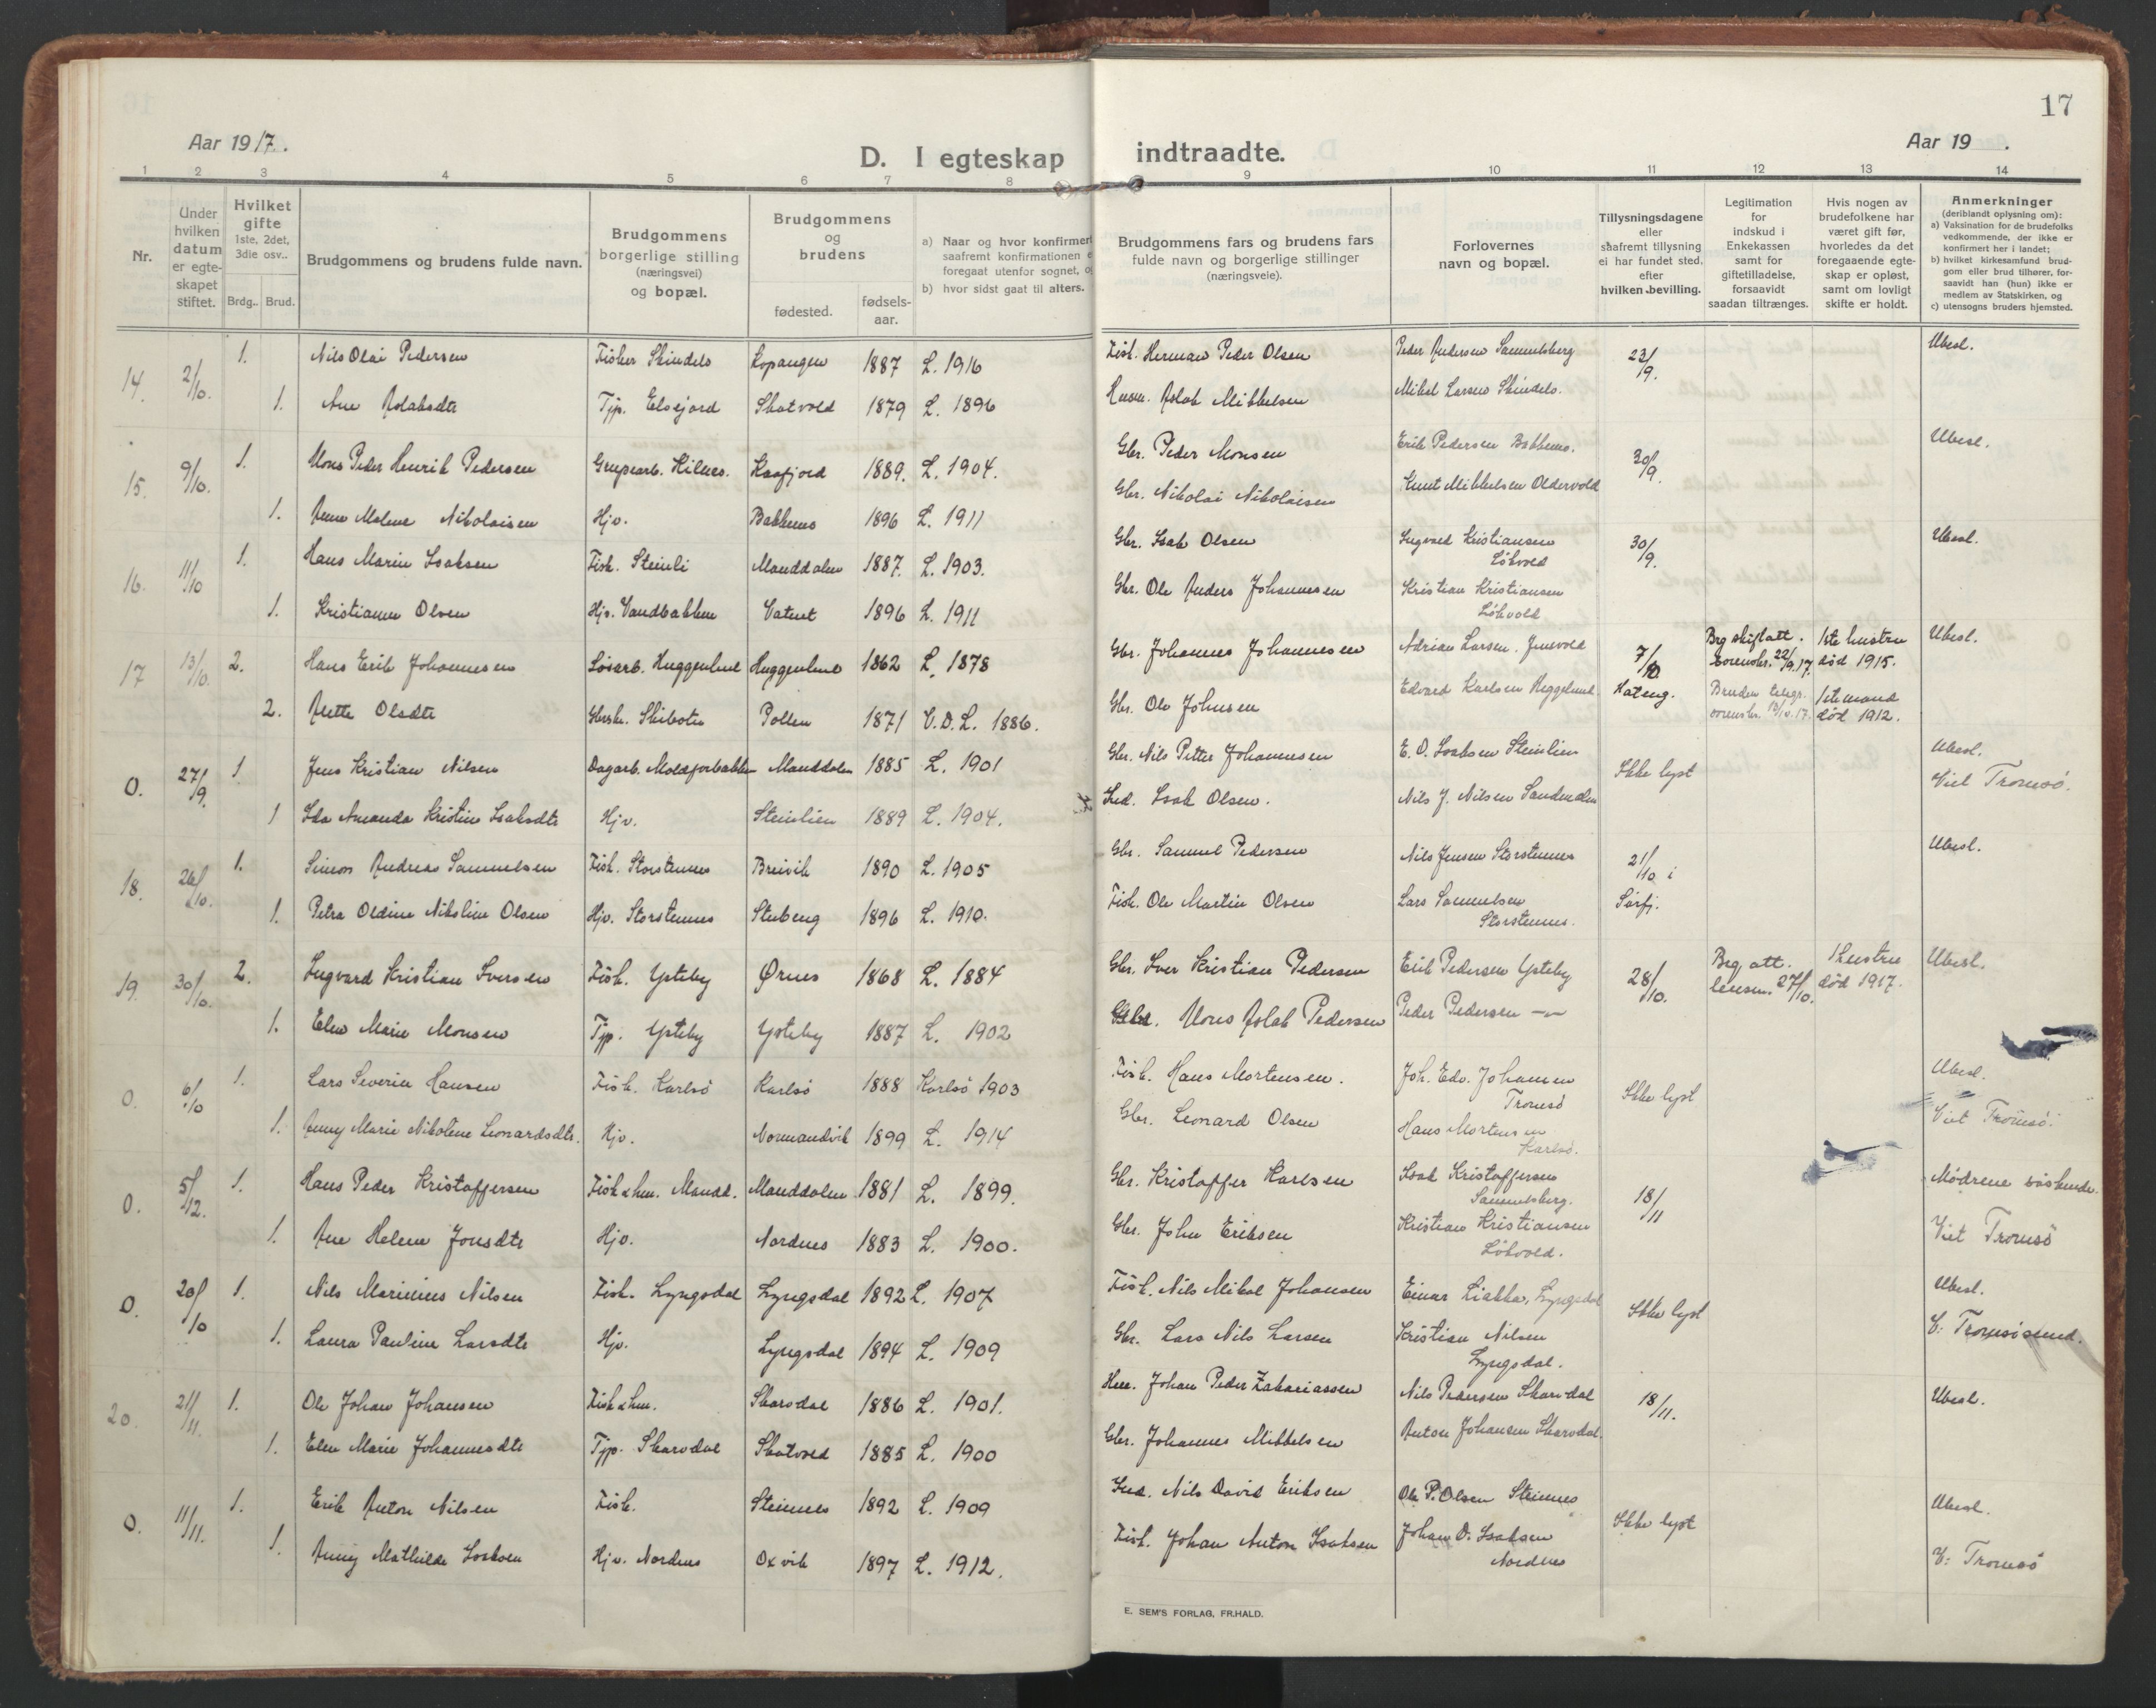 17
Aar 1917.
Aar 19 .
D. I egteskap indtraadte.
1 2 3 4 5 6 7 8 9 10 11 12 13 14
Nr.
Under hvilken datum er egte-skapet stiftet.
Hvilket gifte
1ste, 2det, 3die osv..
Brdg.. Brud.
Brudgommens og brudens fulde navn.
Brudgommens borgerlige stilling (næringsvei) og bopæl.
Brudgommens og brudens
fødested.
fødsels-aar.
a) Naar og hvor konfirmert
saafremt konfirmationen e
foregaat utenfor sognet, o
b) hvor sidst gaat til alters.
Brudgommens fars og brudens fars
fulde navn og borgerlige stillinger
(næringsveie).
Forlovernes
navn og bopæl.
Tillysningsdagene
eller
saafremt tillysning
ei har fundet sted,
efter
hvilken bevilling.
Legitimation
for
indskud i
Enkekassen
samt for
giftetilladelse,
forsaavidt
saadan tiltrænges.
Hvis nogen av
brudefolkene har
været gift før,
hvorledes da det
foregaaende egte-
skap er opløst,
samt om lovligt
skifte er holdt.
Anmerkninger
(deriblandt oplysning om):
a) Vaksination for de brudefolks
vedkommende, der ikke er
konfirmert her i landet;
b) hvilket kirkesamfund brud-
gom eller brud tilhører, for-
saavidt han (hun) ikke er
medlem av Statskirken, og
c) utensogns bruders hjemsted.
14. 2/10. 1. Nils Olai Pedersen Fisker Skindels Kopangen 1887 L. 1916 Fisk. Herman Peder Olsen Peder Andersen Samuelsberg 23/9. Ubesl.
1. Ane Aslaksdtr Tjp. Elvejord Skatvold 1879 L. 1896 Husm. Aslak Mikkelsen Mikal Larsen Skindels.
15. 9/10. 1. Mons Peder Henrik Pedersen Grupearb. Kilnes. Kaafjord 1889. L. 1904. Gbr. Peder Monsen Erik Pedersen Bakkenes. 30/9. Ubesl.
1. Anne Malene Nikolaisen Hjv. Bakkenes 1896 L. 1911 Gbr. Nikolai Nikolaisen Knut Mikkelsen Oldervold
16. 11/10 1. Hans Marin Isaksen Fisk. Steinli Manddalen 1887. L. 1903. Gbr. Isak Olsen Ingvard Kristiansen Løkvold 30/9. Ubesl.
1. Kristianna Olsen Hjv. Vandbakken Vatnet 1896 L. 1911 Gbr. Ole Anders Johannesen Kristian Kristiansen Løkvold
17 13/10. 2. Hans Erik Johannesen Løsarb. Huggenlund Huggenlund 1862 L. 1878 Gbr. Johannes Johannesen Adrian Larsen 7/10 Brg skifteatt. 22/9.17. 1ste hustru død 1915. Ubesl.
2. Anette Olsdtr Skibotn Pollen 1871 V.D.L. 1886. Gbr. Ole Johnsen Edvard Karlsen Heggelund Hateng. Bruden telegr. 13/10.17. 1ste mand død 1912.
0. 27/9. 1. Jens Kristian Nilsen Dagarb. Manddalen 1885 L. 1901 Gbr. Nils Petter Johannesen E. O. Isaksen Steinlien Ikke lyst Ubesl.
1 Ida Amanda Kristine Isaksdtr Hjv. Steinlien 1889 L. 1904. Ind. Isak Olsen. Nils J. Nilsen Viet Tromsö.
18. 26/10. 1. Simon Andreas Samuelsen Fisk. Storstennes Breivik 1890 L. 1905 Gbr. Samuel Pedersen Nils Jensen Storstennes 21/10 i Ubesl.
1. Petra Oldine Nikoline Olsen Hjv. Storstennes Stubeng 1896 L. 1910. Fisk. Ole Martin Olsen Lars Samuelsen Storstennes. Sörfj.
19. 30/10. 2. Ingvard Kristian Iversen Fisk. Ysteby Ørnes 1868 L. 1884 Gbr. Iver Kristian Pedersen Erik Pedersen Ysteby 28/10. Brg att. lensm. 27/10. 1 hustru død 1917. Ubesl.
1. Elen Marie Monsen Tjp. Ysteby Ysteby 1887 L. 1902 Mons Aslak Pedersen Peder Pedersen —"—
0. 6/10 1. Lars Severin Hansen Fisk. Karlsö Karlsö 1888 Karlsö 1903 Fisk. Hans Mortensen. Joh. Edv. Johansen Tromsö Ikke lyst Ubesl.
1. Anny Marie Nikoline Leonardsdtr. Hjv. Normandvik 1899 L. 1914 Gbr. Leonard Olsen Hans Mortensen Karlsö. Viet Tromsö.
0. 5/12. 1. Hans Peder Kristoffersen Fisk & hm. Mandd. Manddalen 1881 L. 1899. Gbr. Kristoffer Karlsen Isak Kristoffersen Samuelsberg. 18/11 Mödrene söskende.
1. Ane Helene Jonsdtr Hjv. Nordnes 1883 L. 1900. Gbr. John Eriksen Kristian Kristiansen Løkvold. Viet Tromsö
0. 20/10 1. Nils Marinius Nilsen Fisk. Lyngsdal Lyngsdal 1892 L. 1907 Fisk. Nils Mikal Johansen Einar Liakka, Lyngsdal Ikke lyst Ubesl.
1. Laura Pauline Larsdtr Hjv. Lyngsdal 1894 L. 1909 Gbr. Lars Nils Larsen Kristian Nilsen Lyngsdal. V: Tromsösund.
20. 21/11. 1. Ole Johan Johansen Fisk & hm. Skarsdal 1886 L. 1901. Johan Peder Zakariassen Nils Pedersen Skarsdal 18/11. Ubesl.
1. Elen Marie Johannesdtr Tjp. Skarsdal Skatvold 1885 L. 1900 Gbr. Johannes Mikkelsen Anton Johansen Skarsdal.
0. 11/11. 1. Erik Anton Nilsen Fisk. Steinnes 1892 L. 1909 Ind. Nils David Eriksen Ole P. Olsen Steinnes Ikke lyst Ubesl.
1. Anny Mathilde Isaksen Hjv. Nordnes Oxvik 1897 L. 1912. Fisk. Johan Anton Isaksen Johan D. Isaksen Nordnes V: Tromsö
E. SEM'S FORLAG, FR.HALD.